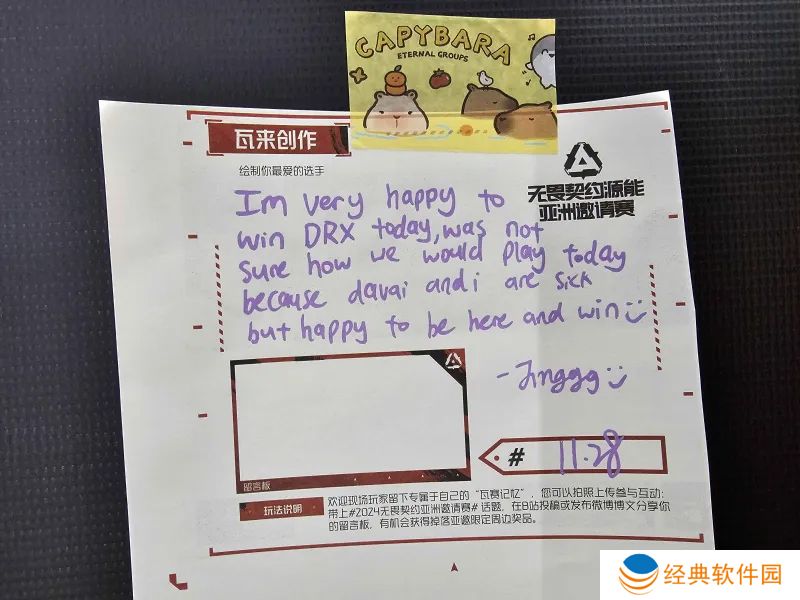 CAPYBARA
ETERNAL GROUPS
瓦来创作
绘制你最爱的选手
无畏契约源能
亚洲邀请赛
Im very happy to
win DRX today, was not
sure how we would play today
because davai and i are sick
but happy to be here and win
- Jinggg
留言板
# 11.28
玩法说明
欢迎现场玩家留下专属于自己的“瓦赛记忆”,您可以拍照上传参与互动:
带上#2024无畏契约亚洲邀请赛#话题,在B站投稿或发布微博博文分享你
的留言板,有机会获得掉落亚邀限定周边奖品。
经典软件园